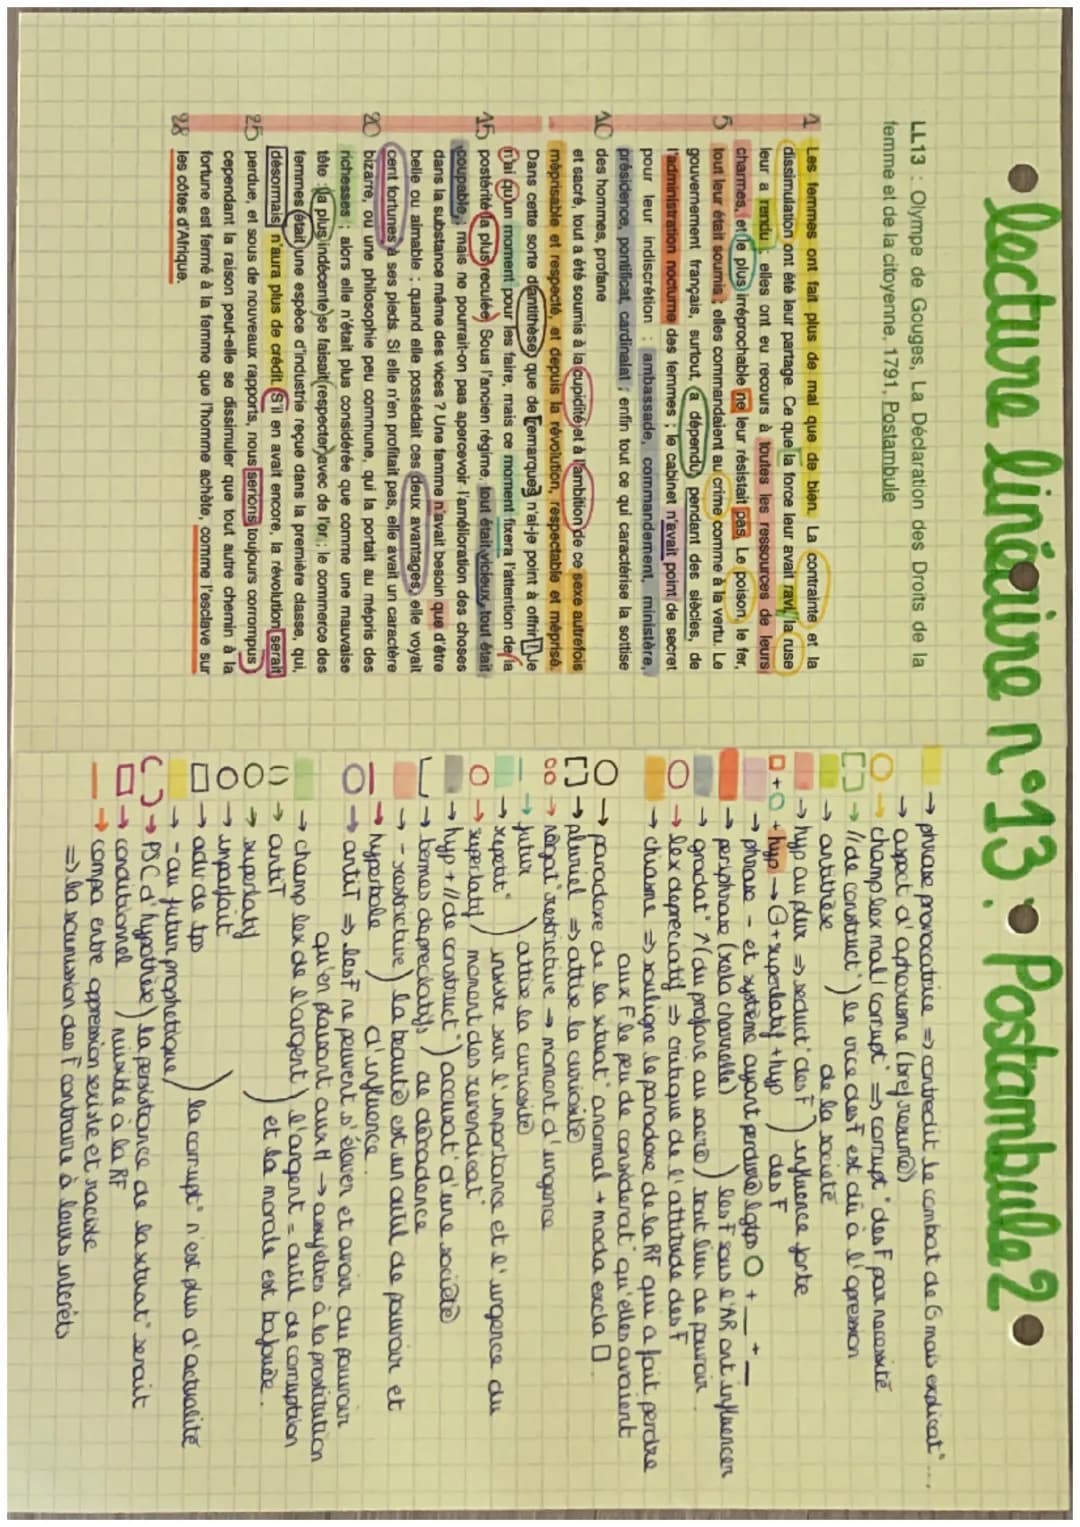 lecture linéaire n°13 : Postambule 2
LL13 : Olympe de Gouges, La Déclaration des Droits de la
femme et de la citoyenne, 1791, Postambule
1 Les femmes ont fait plus de mal que de bien. La contrainte et la
dissimulation ont été leur partage. Ce que la force leur avait ravi, la ruse
leur a rendu ; elles ont eu recours à toutes les ressources de leurs
charmes, et le plus irréprochable ne leur résistait pas. Le poison, le fer,
5 tout leur était soumis ; elles commandaient au crime comme à la vertu. Le
gouvernement français, surtout, a dépendu, pendant des siècles, de
l'administration nocturne des femmes ; le cabinet n'avait point de secret
pour leur indiscrétion : ambassade, commandement, ministère,
présidence, pontificat, cardinalat ; enfin tout ce qui caractérise la sottise
10 des hommes, profane
et sacré, tout a été soumis à la cupidité et à l'ambition de ce sexe autrefois
méprisable et respecté, et depuis la révolution, respectable et méprisé.
Dans cette sorte d'antithèse, que de remarques n'ai-je point à offrir ! Je
n'ai qu'un moment pour les faire, mais ce moment fixera l'attention de la
15 postérité la plus reculée. Sous l'ancien régime, tout était vicieux, tout était
coupable ; mais ne pourrait-on pas apercevoir l'amélioration des choses
dans la substance même des vices ? Une femme n'avait besoin que d'être
belle ou aimable ; quand elle possédait ces deux avantages, elle voyait
cent fortunes à ses pieds. Si elle n'en profitait pas, elle avait un caractère
20 bizarre, ou une philosophie peu commune, qui la portait au mépris des
richesses ; alors elle n'était plus considérée que comme une mauvaise
tête ; la plus indécente se faisait respecter avec de l'or ; le commerce des
femmes était une espèce d'industrie reçue dans la première classe, qui,
désormais, n'aura plus de crédit. S'il en avait encore, la révolution serait
25 perdue, et sous de nouveaux rapports, nous serions toujours corrompus ;
cependant la raison peut-elle se dissimuler que tout autre chemin à la
fortune est fermé à la femme que l'homme achète, comme l'esclave sur
28 les côtes d'Afrique.
→ phrase provocatrice ⇒ contredit le combat de G mais explicat° ...
→ aspect d'aphorisme (bref, résumé)
→ champ lex mal / corrupt° ⇒ corrupt° des F par nécessité
→ // de construct° ) le vice des F est dû à l'opression
→ antithèse ) de la société
→ hyp au plur ⇒ séduct° des F ) influence forte
□ + ○ + hyp → G + superlatif + hyp ) des F
→ phrase - et système ayant perduré lgtps ○ + __ + __
→ periphrase (rela charnelle) ) les F sous l'AR ont influencer
→ gradat° ↗ (du profane au sacré) ) tout lieu de pouvoir
→ lex dépréciatif ⇒ critique de l'attitude des F
→ chiasme ⇒ souligne le paradoxe de la RF qui a fait perdre
aux F le peu de considérat° qu'elles avaient
→ paradoxe de la situat° anormal + moda excla □
→ pluriel ⇒ attise la curiosité
→ négat° restrictive → moment d'urgence
→ futur ) attise la curiosité
→ repetit° ) insiste sur l'importance et l'urgence du
→ superlatif ) moment des revendicat°
→ hyp + // de construct° ) accusat° d'une société
→ termes dépréciatifs ) de décadence
→ - restrictive ) la beauté est un outil de pouvoir et
→ hyperbole ) d'influence.
→ antiT ⇒ les F ne peuvent s'élever et avoir du pouvoir
qu'en plaisant aux H → assujetties à la prostitution
→ champ lex de l'argent ) l'argent = outil de corruption
→ antiT ) et la morale est bafouée.
→ superlatif
→ imparfait
→ adv de tps ) la corrupt° n'est plus d'actualité
→ - au futur prophétique
→ PSC d'hypothèse ) la persistance de la situat° serait
→ conditionnel ) nuisible à la RF
→ compa entre oppression sexiste et raciste
⇒ la soumission des F contraire à leurs intérêts